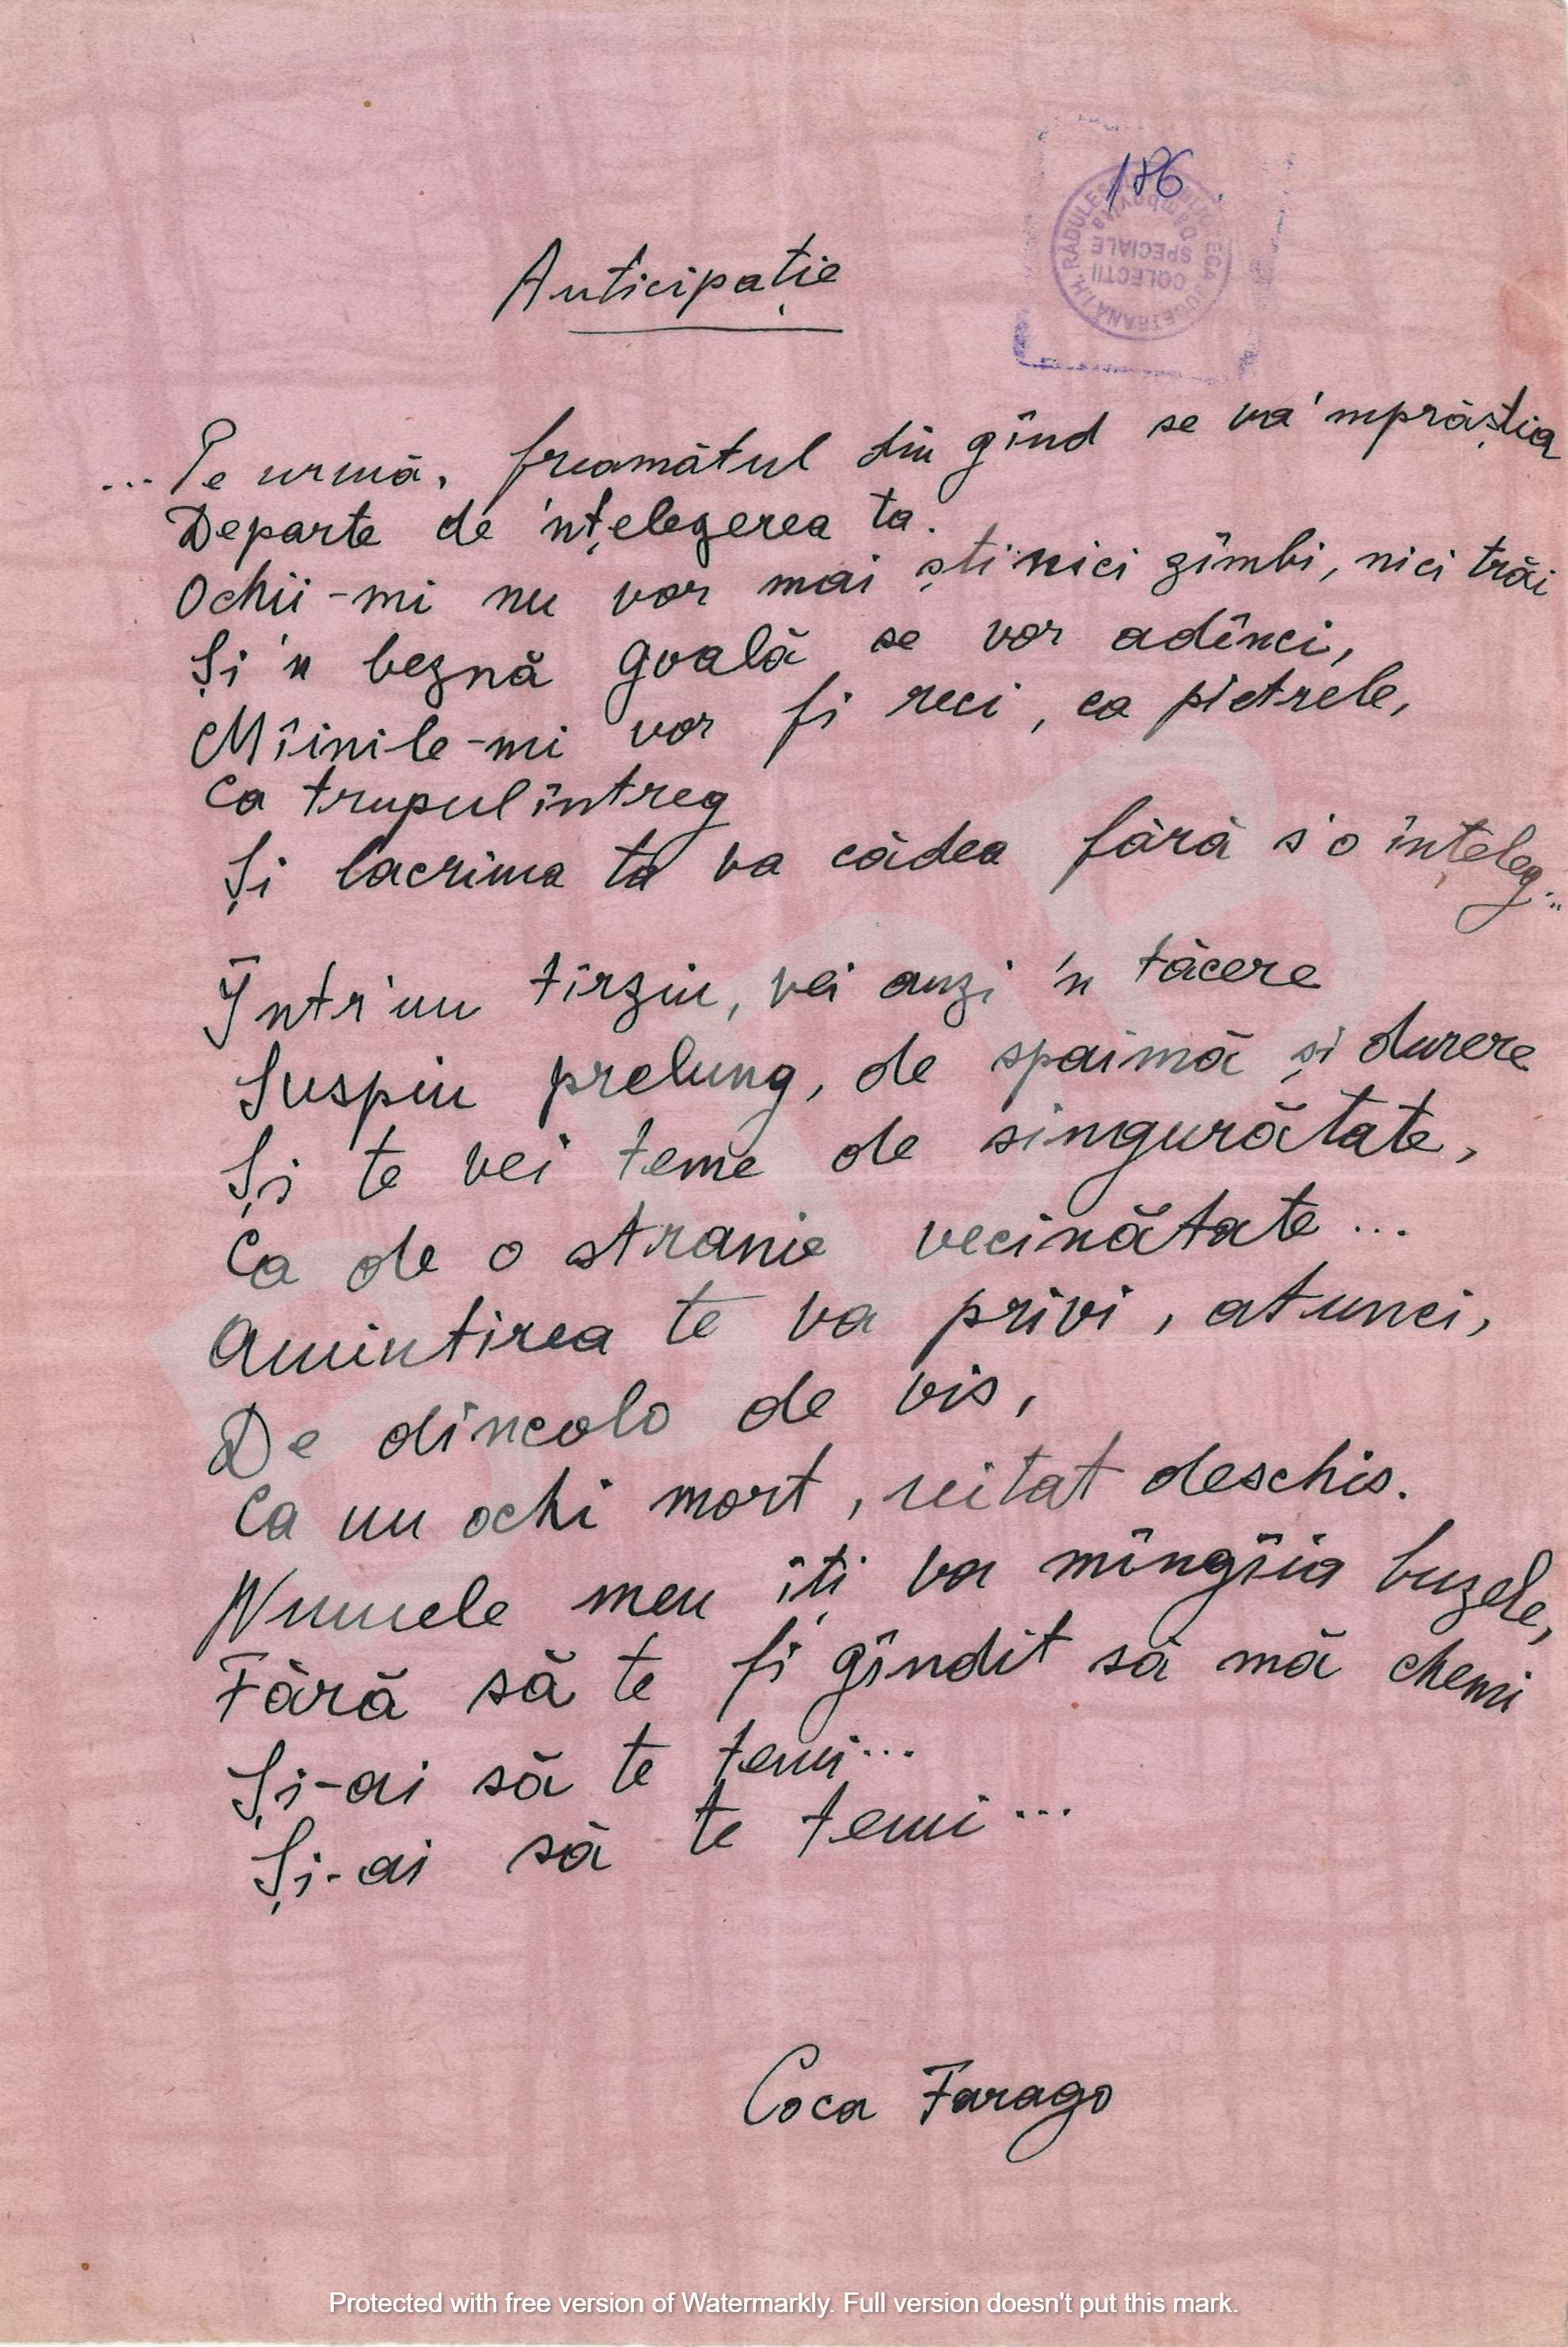 186
BIBLIOTECA JUDEȚEANĂ I.H. RĂDULESCU
Dâmbovița
COLECȚII
SPECIALE
Anticipație
...Pe urmă, freamătul din gînd se va 'mprăștia
Departe de 'nțelegerea ta.
Ochii-mi nu vor mai ști nici zîmbi, nici trăi
Și 'n beznă goală se vor adînci,
Mîinile-mi vor fi reci, ca pietrele,
Ca trupul întreg
Și lacrima ta va cădea fără s'o înțeleg...
Într'un tîrziu, vei auzi 'n tăcere
Suspin prelung, de spaimă și durere
Și te vei teme de singurătate,
Ca de o stranie vecinătate...
Amintirea te va privi, atunci,
De dincolo de vis,
Ca un ochi mort, uitat deschis.
Numele meu îți va mîngîia buzele,
Fără să te fi gîndit să mă chemi
Și-ai să te temi...
Și-ai să te temi...
Coca Farago
Protected with free version of Watermarkly. Full version doesn't put this mark.